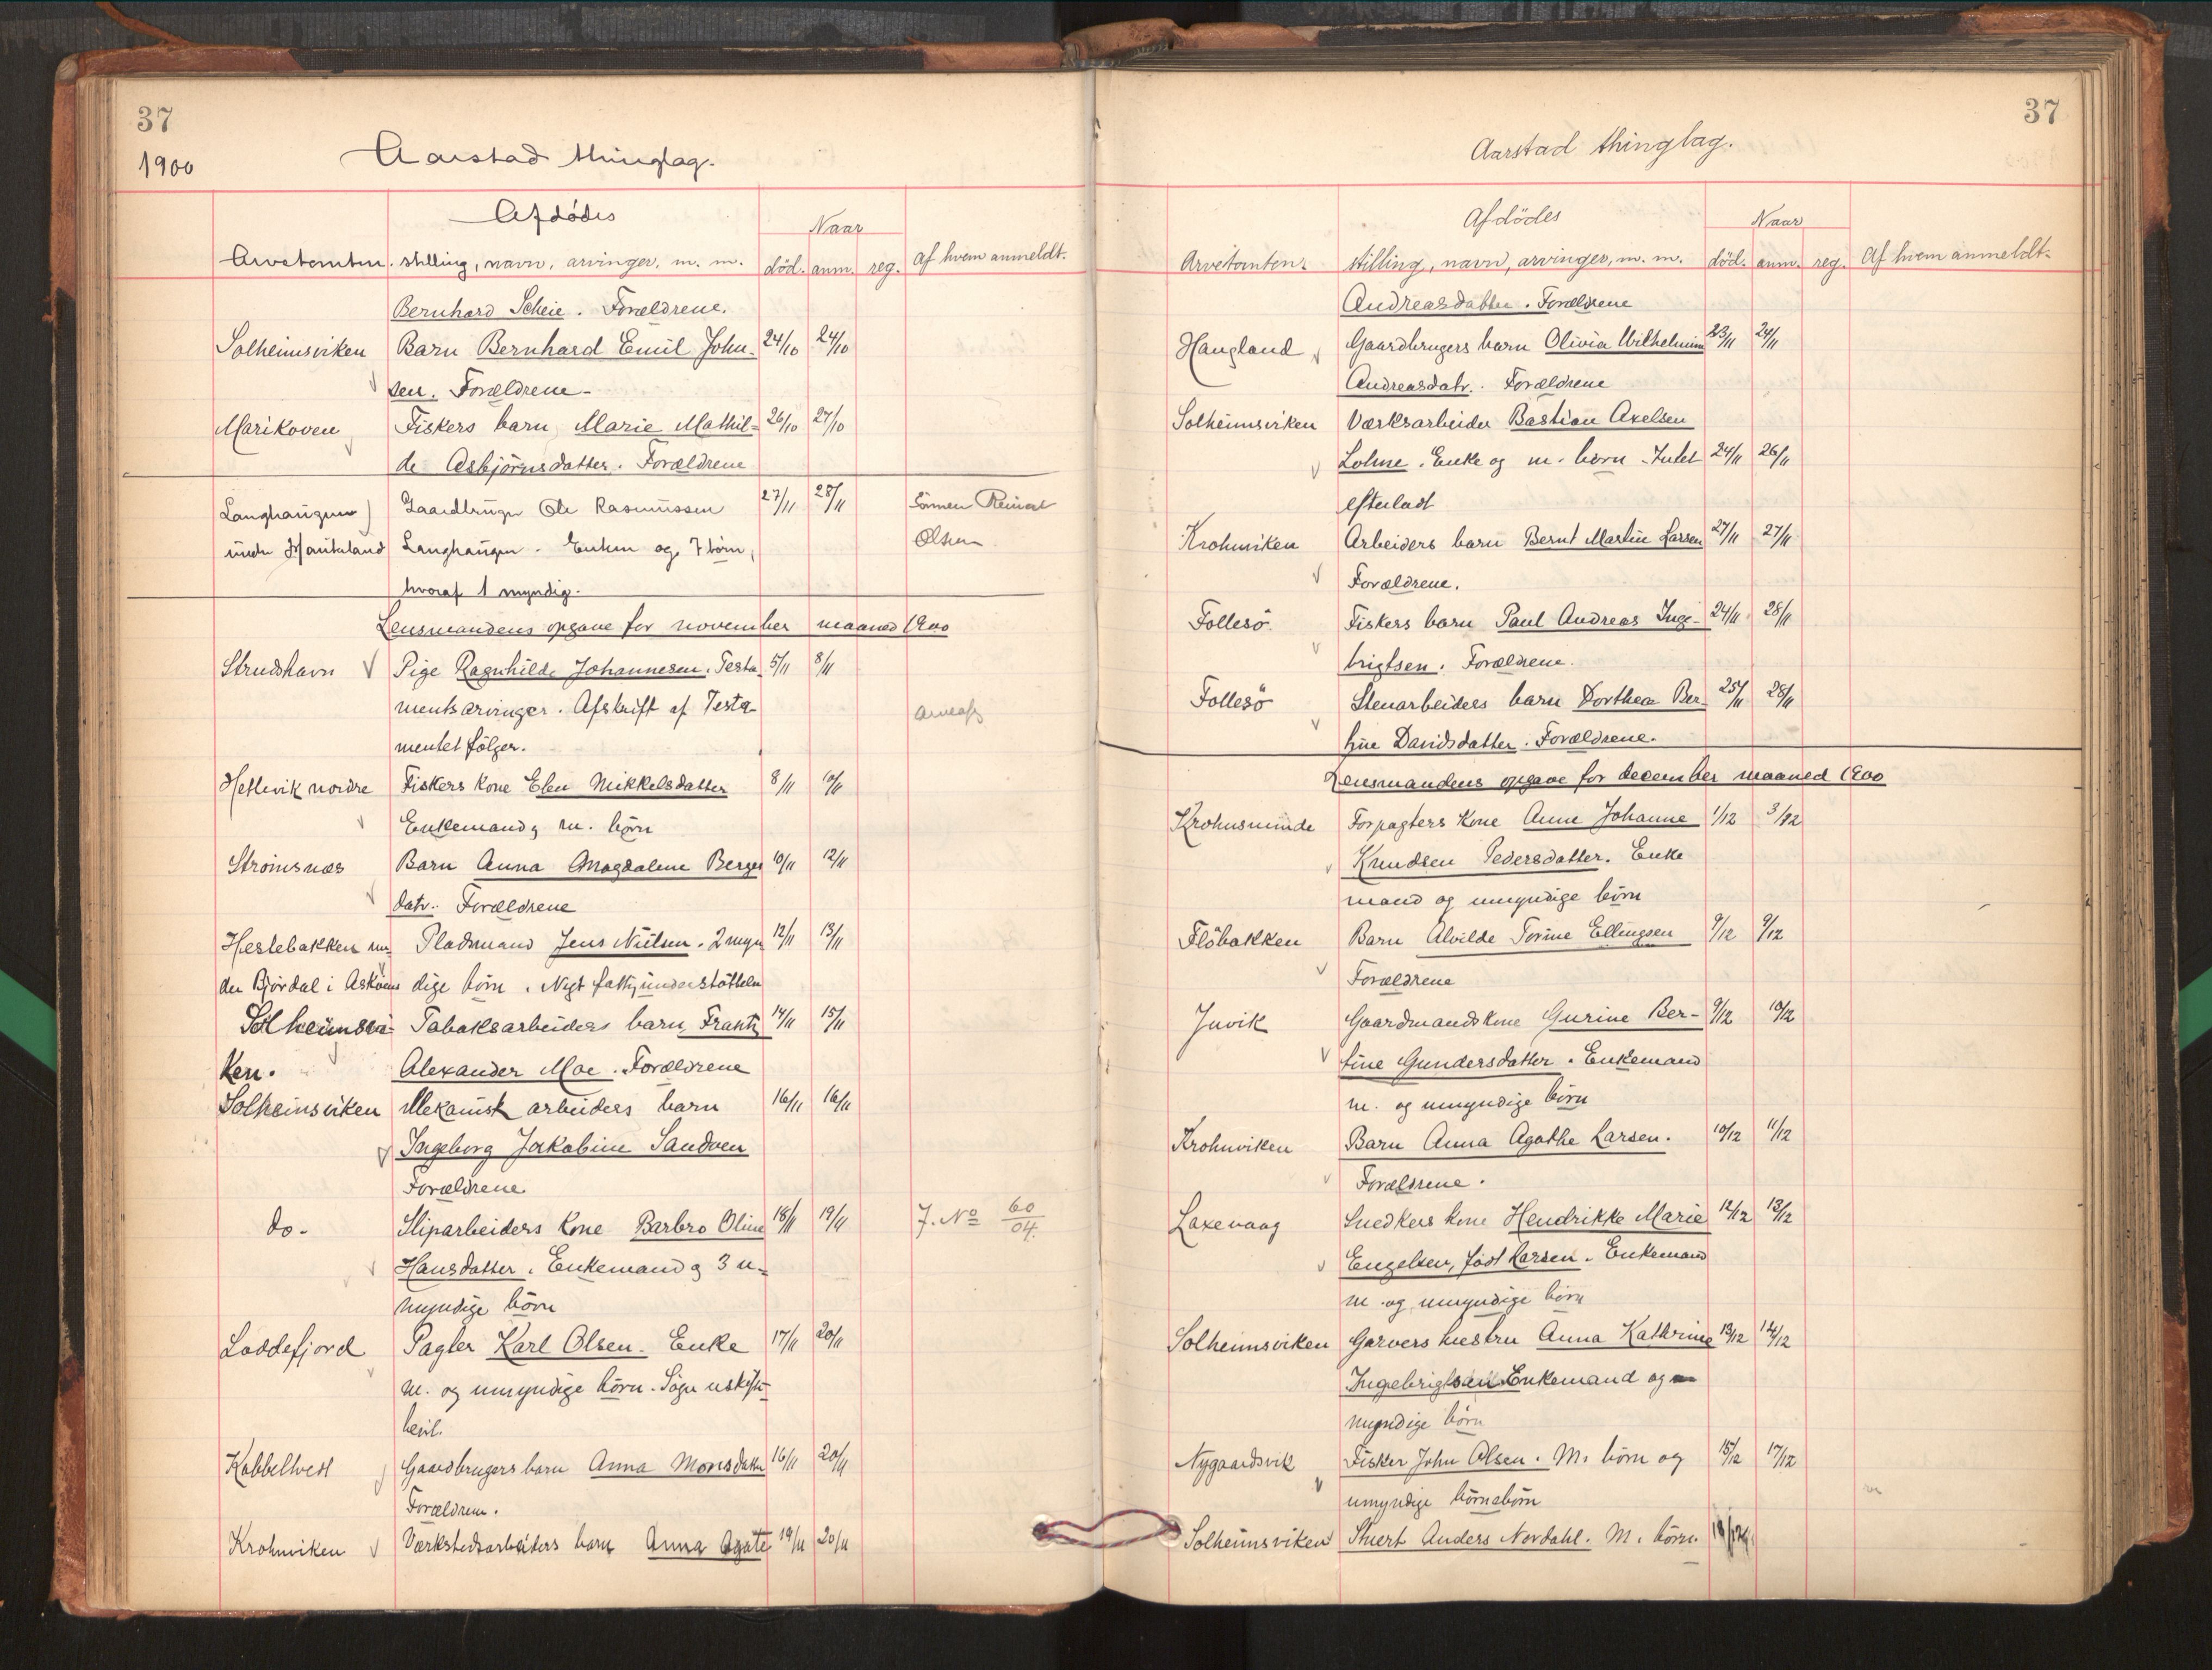 37
1900
Aarstad thinglag.
Afdödes
Naar
Arvetomten. stilling, navn, arvinger, m. m. död. anm. reg. Af hvem anmeldt.
Bernhard Scheie. Forældrene.
Solheimsviken Barn Bernhard Emil John- 24/10 24/10
sen. Forældrene -
Marikoven Fiskers barn Marie Mathil= 26/10 27/10
de Asbjörnsdatter. Forældrene
Langhaugen Gaardbruger Ole Rasmussen 27/11 28/11 Sönnen Reinert
under Haukeland Langhaugen. Enken og 7 börn, Olsen
hvoraf 1 myndig.
Lensmandens opgave for november maaned 1900
Strudshavn Pige Ragnhilde Johannesen. Testa- 5/11 8/11
mentsarvinger. Afskrift af Testa-
mentet fölger.
Hetlevik nordre Fiskers kone Elen Mikkelsdatter 8/11 10/11
Enkemand og m. börn
Strömsnæs Barn Anna Magdalene Berges 10/11 12/11
datr. Forældrene
Hestebakken un- Pladsmand Jens Nilsen. 2 myn 12/11 13/11
der Björdal i Asköens dige börn. Nygt fattigunderstöttelse
Solheimsvi- Tobaksarbeiders barn Frantz 14/11 15/11
ken. Alexander Moe. Forældrene
Solheimsviken Mekanisk arbeiders barn 16/11 16/11
Ingeborg Jakobine Sandven
Forældrene
do - Sliparbeiders kone Barbro Oline 18/11 19/11 J. No 60/04.
Hansdatter. Enkemand og 3 u-
myndige börn
Loddefjord Pagter Karl Olsen. Enke 17/11 20/11
m. og umyndige börn. Söger uskifte-
bevil.
Kobbeltvedt Gaardbrugers barn Anna Monsdatter 16/11 20/11
Forældrene.
Krohnviken Værkstedsarbeiders barn Anna Agate 19/11 20/11
37
Aarstad thinglag.
Afdödes
Naar
Arvetomten. stilling, navn, arvinger, m. m. död. anm. reg. Af hvem anmeldt.
Andreasdatter. Forældrene
Haugland Gaardbrugers barn Olivia Wilhelmine 23/11 24/11
Andreasdatr. Forældrene
Solheimsviken Værksarbeider Bastian Axelsen
Lohne. Enke og m. börn. Intet 24/11 26/11
efterladt
Krohnviken Arbeiders barn Bernt Martin Larsen 27/11 27/11
Forældrene.
Follesö Fiskers barn Paul Andreas Inge- 24/11 28/11
brigtsen. Forældrene.
Follesö Stenarbeiders barn Dorthea Ber- 25/11 28/11
tine Davidsdatter. Forældrene.
Lensmandens opgave for december maaned 1900
Krohnsminde Forpagters kone Anne Johanne 1/12 3/12
Knudsen Pedersdatter. Enke
mand og umyndige börn
Flöbakken Barn Alvilde Torine Ellingsen 9/12 9/12
Forældrene
Juvik Gaardmandskone Gurine Ber- 9/12 10/12
tine Gundersdatter. Enkemand
m. og umyndige börn
Krohnviken Barn Anna Agathe Larsen. 10/12 11/12
Forældrene.
Laxevaag Snedkers kone Hendrikke Marie 12/12 13/12
Engelsen, född Larsen. Enkemand
m. og umyndige börn
Solheimsviken Garvers hustru Anna Kathrine 13/12 14/12
Ingebrigtsen Enkemand og
myndige börn
Nygaardsvik Fisker John Olsen. M. börn og 15/12 17/12
umyndige börnebörn
Solheimsviken Stuert Anders Nordahl. M. börn.